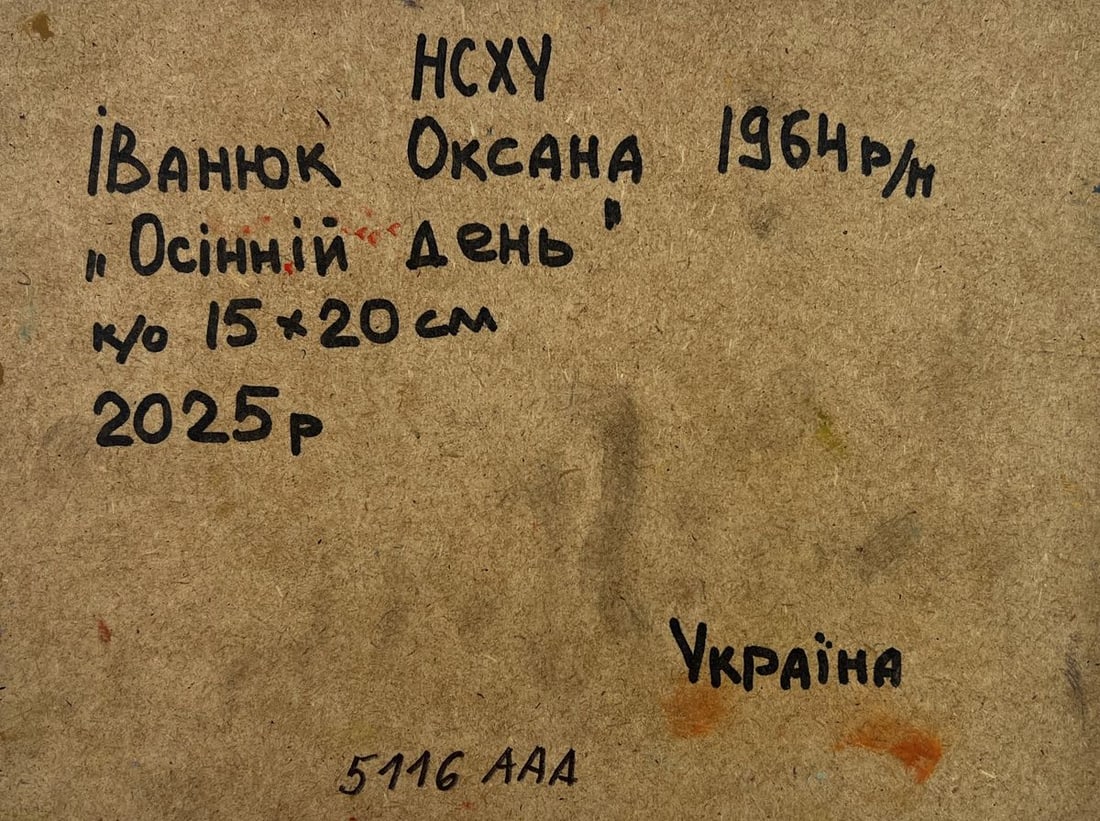 НСХУ
Іванюк Оксана 1964 р/н
„Осінній день"
к/о 15×20 см
2025 р
Україна
5116 ААА